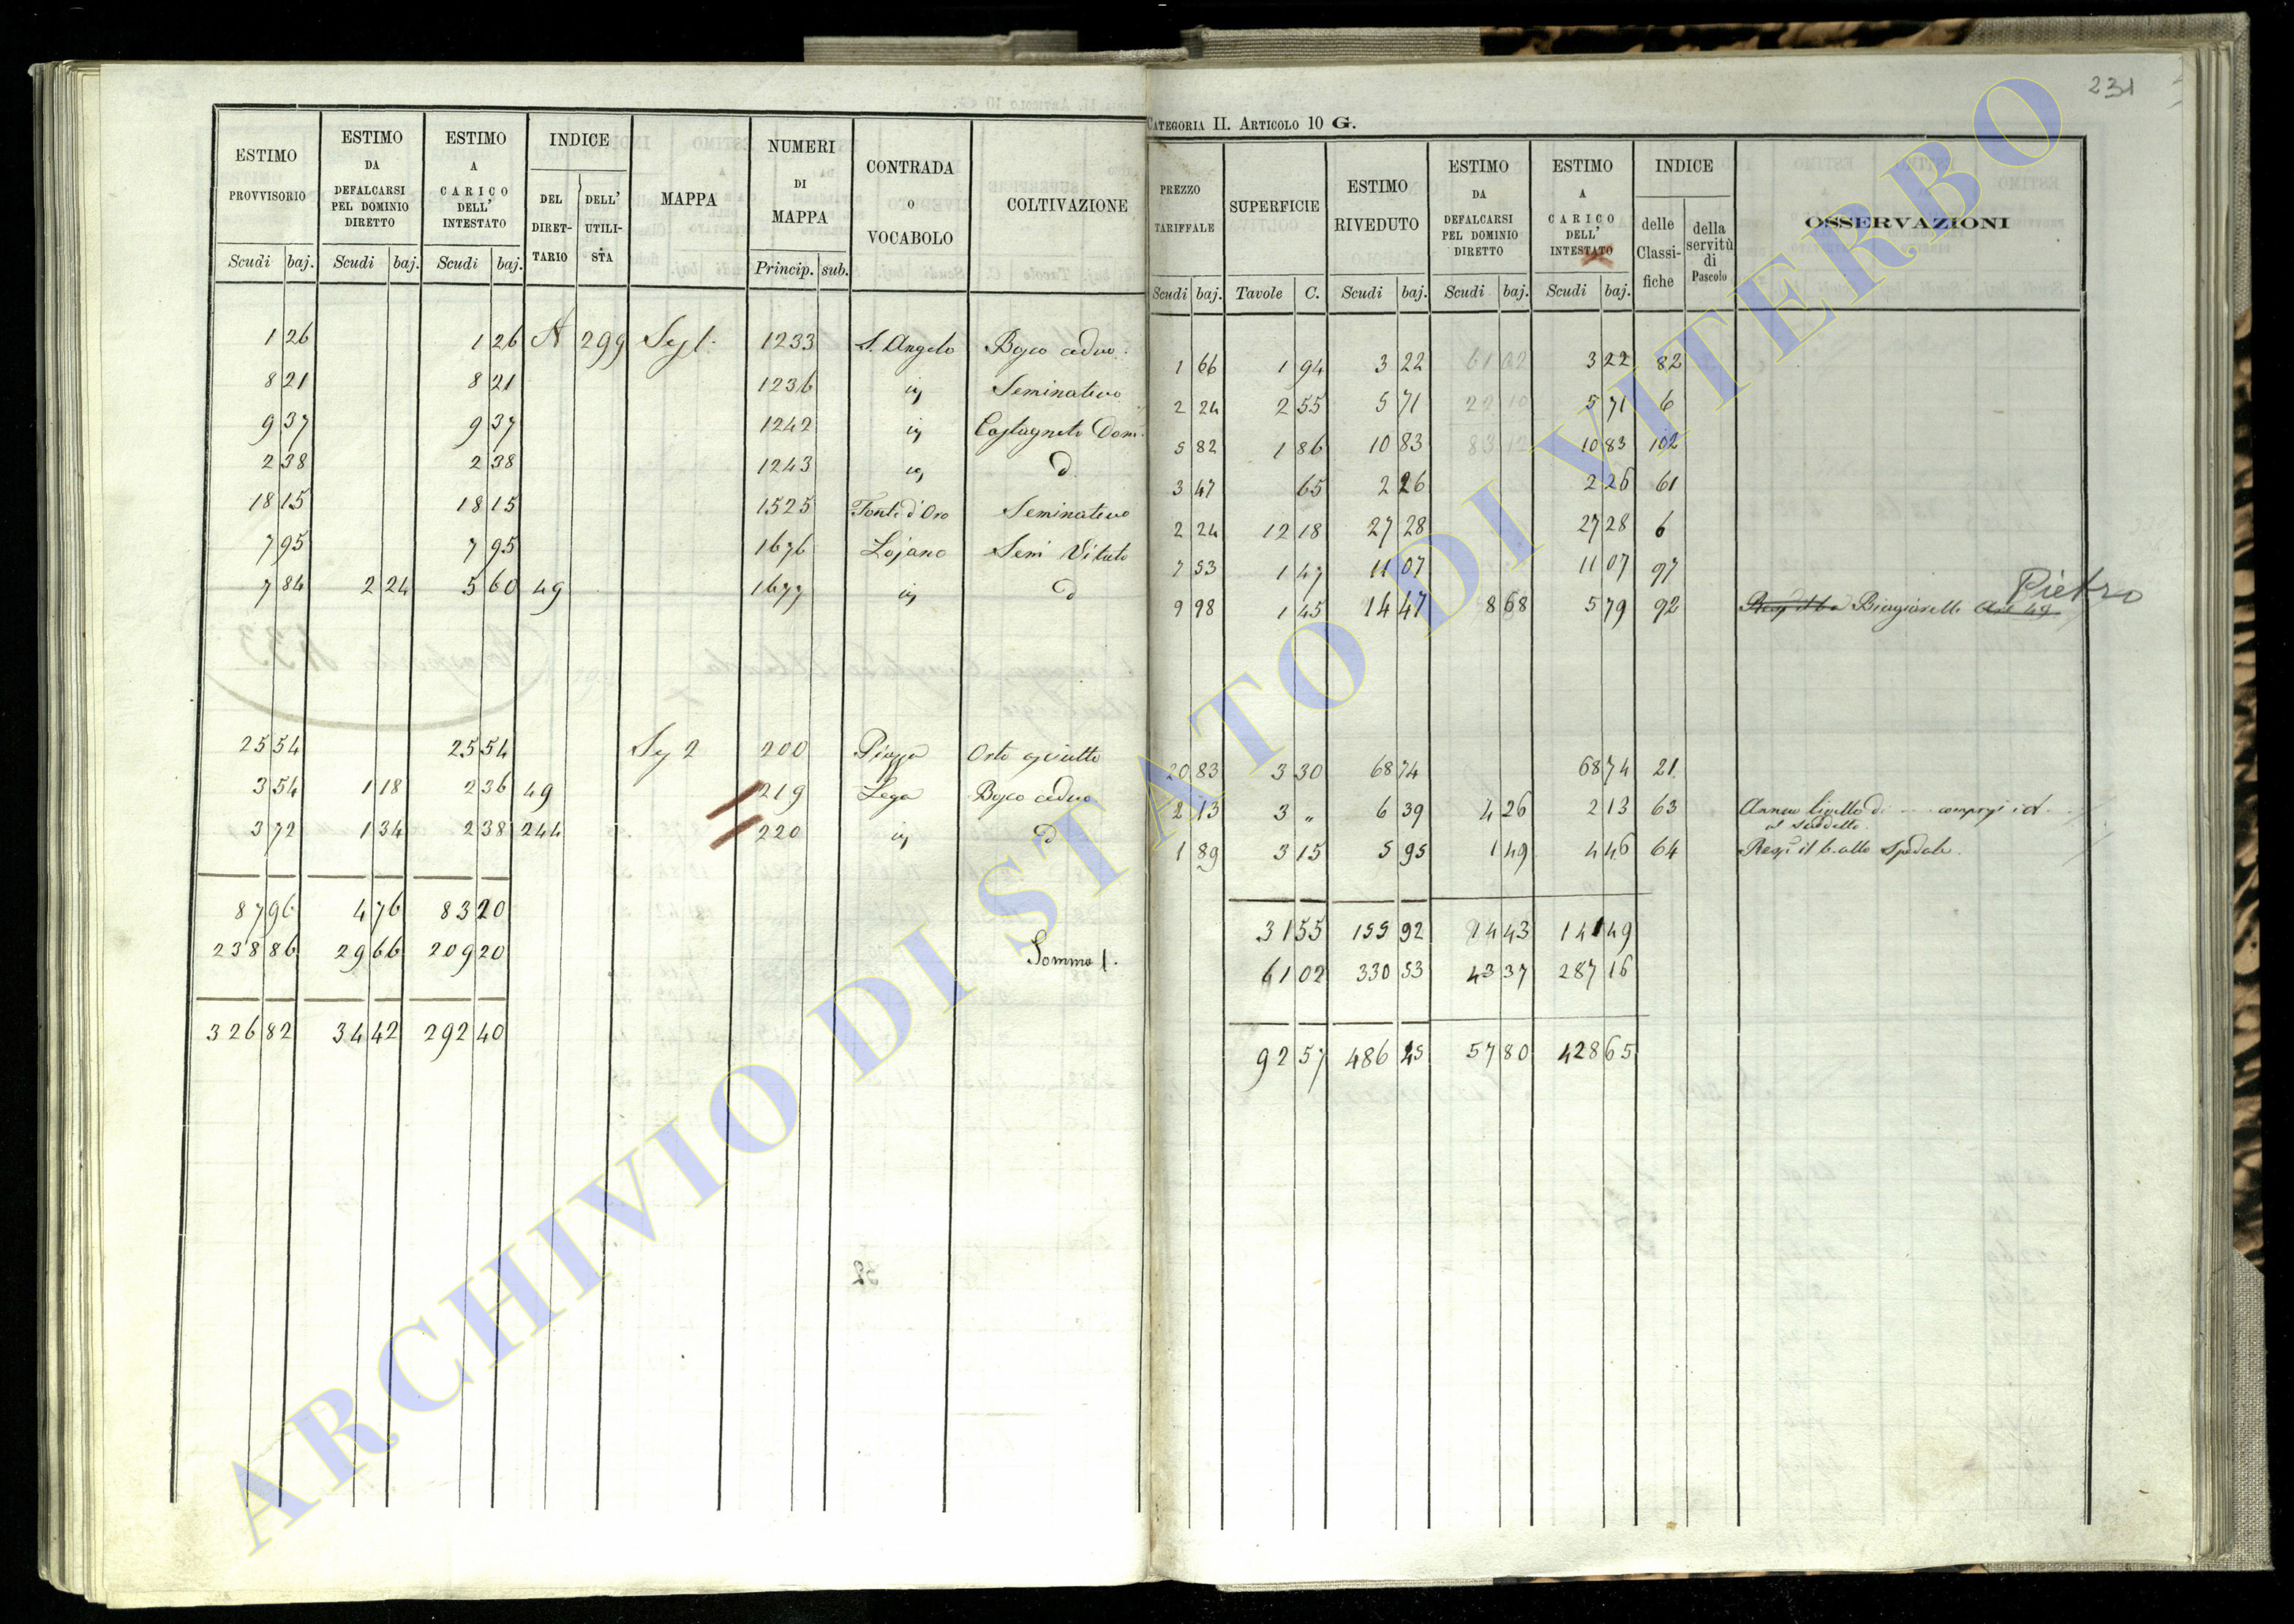 231
CATEGORIA II. ARTICOLO 10 G.
ESTIMO PROVVISORIO Scudi baj. ESTIMO DA DEFALCARSI PEL DOMINIO DIRETTO Scudi baj. ESTIMO A CARICO DELL' INTESTATO Scudi baj. INDICE DEL DIRETTARIO DELL' UTILISTA MAPPA NUMERI DI MAPPA Princip. sub. CONTRADA O VOCABOLO COLTIVAZIONE
1 26 1 26 A 299 1233 S. Angelo Bosco ceduo
8 21 8 21 1236 Seminativo
9 37 9 37 1242 Castagneto Dom.
2 38 2 38 1243 d
18 15 18 15 1525 Fonte d'Oro Seminativo
7 95 7 95 1676 Lojano Sem Vitato
7 84 2 24 5 60 49 1677 d
25 54 25 54 Sez 2 200 Piazza Orto asciutto
3 54 1 18 2 36 49 219 Lega Bosco ceduo
3 72 1 34 2 38 244 220 d
87 96 4 76 83 20
238 86 29 66 209 20 Somma
326 82 34 42 292 40
PREZZO TARIFFALE Scudi baj. SUPERFICIE Tavole C. ESTIMO RIVEDUTO Scudi baj. ESTIMO DA DEFALCARSI PEL DOMINIO DIRETTO Scudi baj. ESTIMO A CARICO DELL' INTESTATO Scudi baj. INDICE delle Classifiche della servitù di Pascolo OSSERVAZIONI
1 66 1 94 3 22 3 22 82
2 24 2 55 5 71 5 71 6
5 82 1 86 10 83 10 83 102
3 47 65 2 26 2 26 61
2 24 12 18 27 28 27 28 6
7 53 1 47 11 07 11 07 97
Pietro
9 98 1 45 14 47 8 68 5 79 92 Biagiarelli art 49
20 83 3 30 68 74 68 74 21
2 13 3 „ 6 39 4 26 2 13 63 Annuo livello di
al suddetto
1 89 3 15 5 95 1 49 4 46 64 Spedale
31 55 155 92 14 43 141 49
61 02 330 53 43 37 287 16
92 57 486 45 57 80 428 65
ARCHIVIO DI STATO DI VITERBO